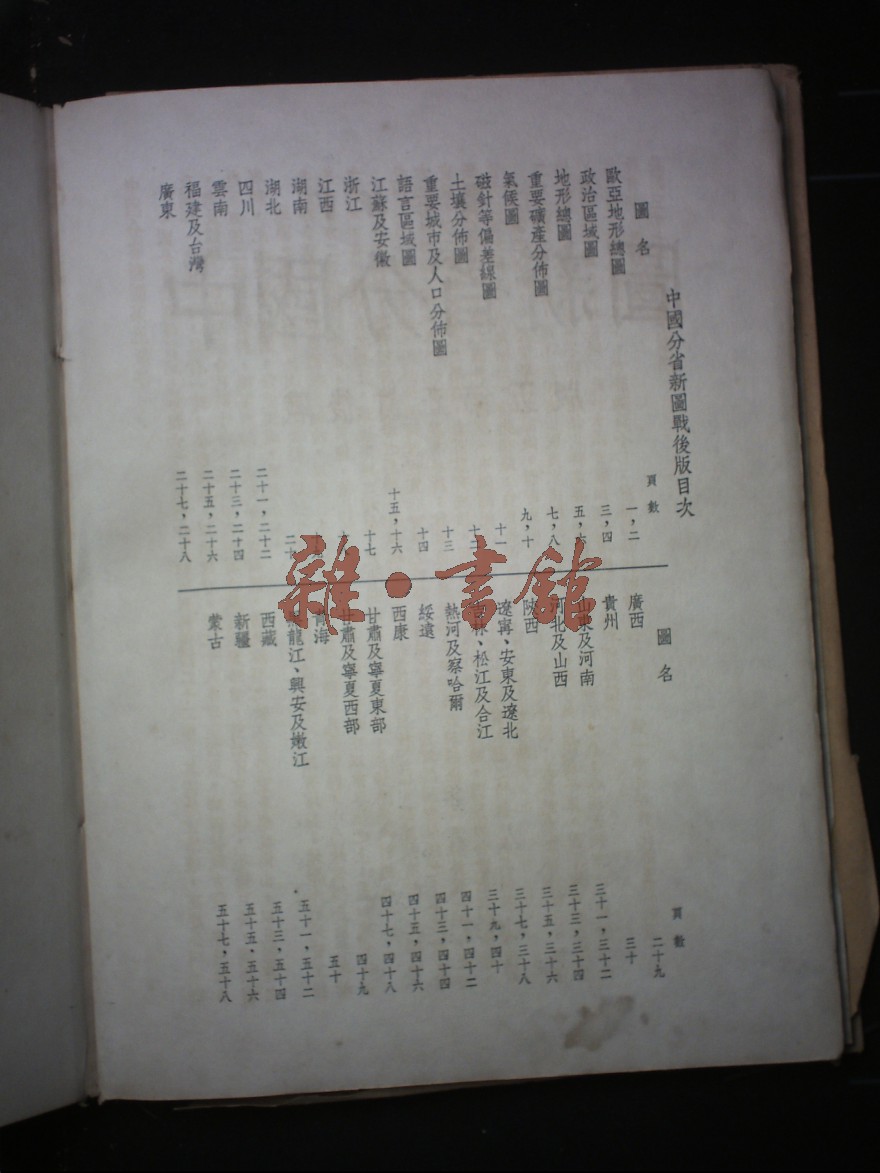 中國分省新圖戰後版目次
圖名 頁數
歐亞地形總圖 一,二
政治區域圖 三,四
地形總圖 五,六
重要礦產分佈圖 七,八
氣候圖 九,十
磁針等偏差線圖 十一
土壤分佈圖 十二
重要城市及人口分佈圖 十三
語言區域圖 十四
江蘇及安徽 十五,十六
浙江 十七
江西
湖南
湖北 二十
四川 二十一,二十二
雲南 二十三,二十四
福建及台灣 二十五,二十六
廣東 二十七,二十八
圖名 頁數
廣西 二十九
貴州 三十
山東及河南 三十一,三十二
河北及山西 三十三,三十四
陝西 三十五,三十六
遼寧、安東及遼北 三十七,三十八
吉林、松江及合江 三十九,四十
熱河及察哈爾 四十一,四十二
綏遠 四十三,四十四
西康 四十五,四十六
甘肅及寧夏東部 四十七,四十八
甘肅及寧夏西部 四十九
青海 五十
黑龍江、興安及嫩江 五十一,五十二
西藏 五十三,五十四
新疆 五十五,五十六
蒙古 五十七,五十八
雜·書館